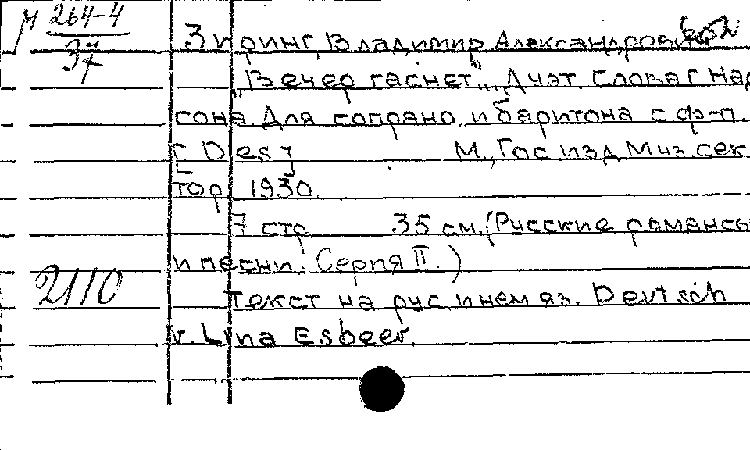 М 264-4
37
Зиринг, Владимир Александрович
"Вечер гаснет". Дуэт. Слова С. Над
сона. Для сопрано и баритона с ф-п.
[Des]
М., Гос. изд. Муз. сек
тор, 1930.
7 стр. 35 см. (Русские романсы
и песни. Серия II.)
2110
Текст на рус. и нем. яз. Deutsch
v. Lina Esbeer.